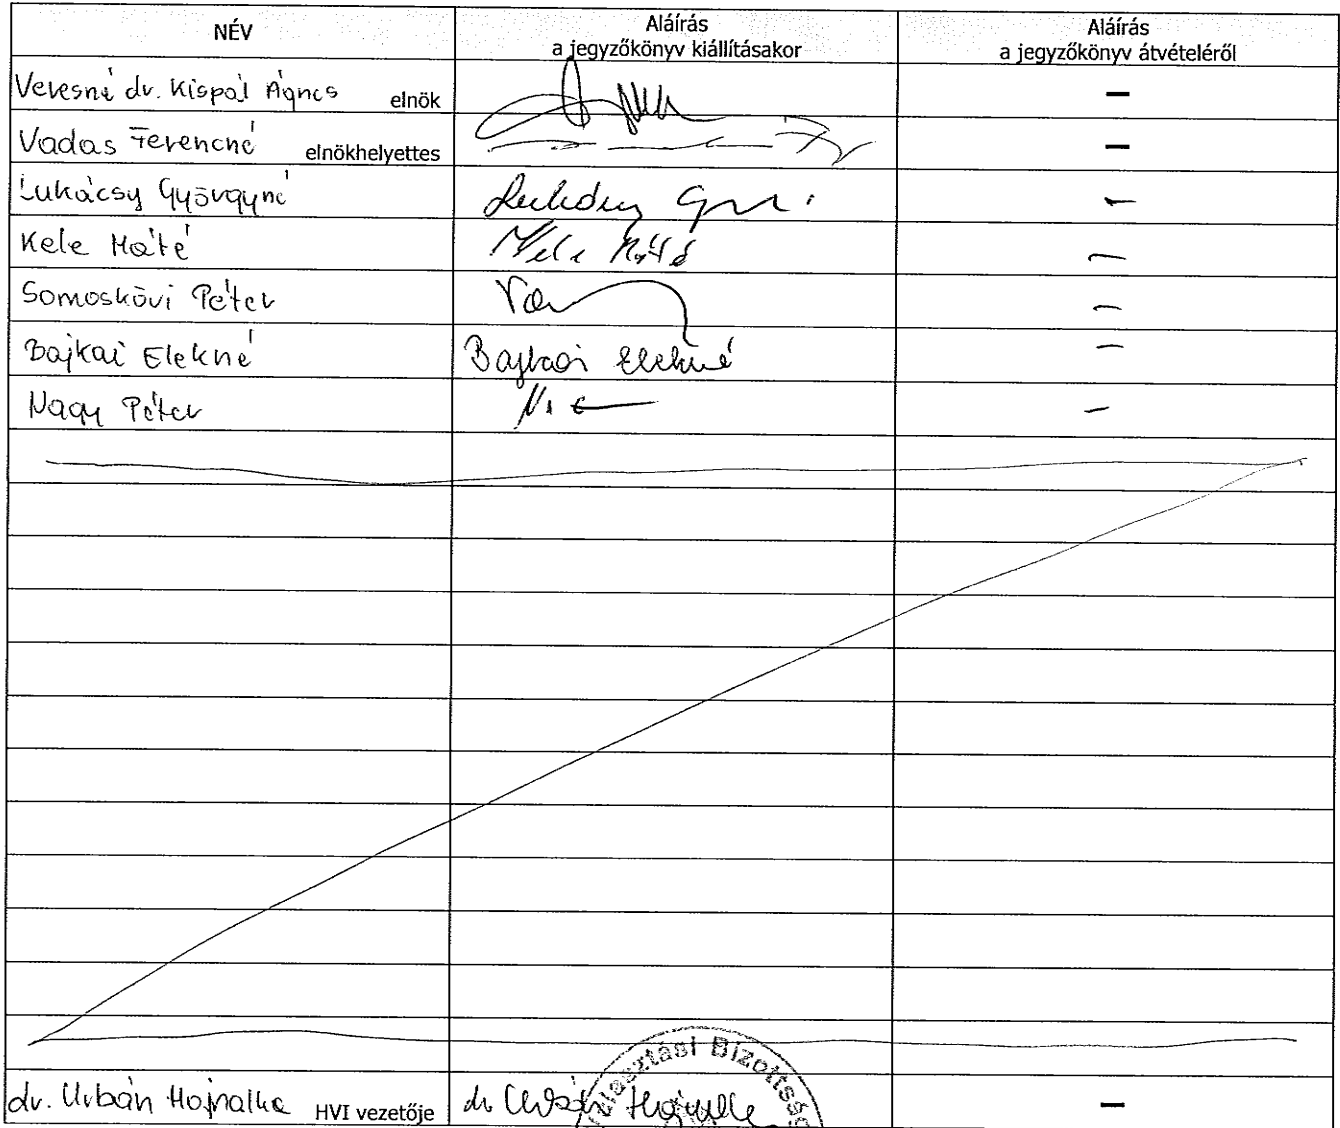 NÉV
Aláírás
a jegyzőkönyv kiállításakor
Aláírás
a jegyzőkönyv átvételéről
Veresné dr. Kispál Ágnes elnök –
Vadas Ferencné elnökhelyettes –
Lukácsy Györgyné –
Kele Máté Kele Máté –
Somoskövi Péter –
Bajkai Elekné Bajkai Elekné –
Nagy Péter –
dr. Urbán Hajnalka HVI vezetője dr Urbán Hajnalka –
Választási Bizottság